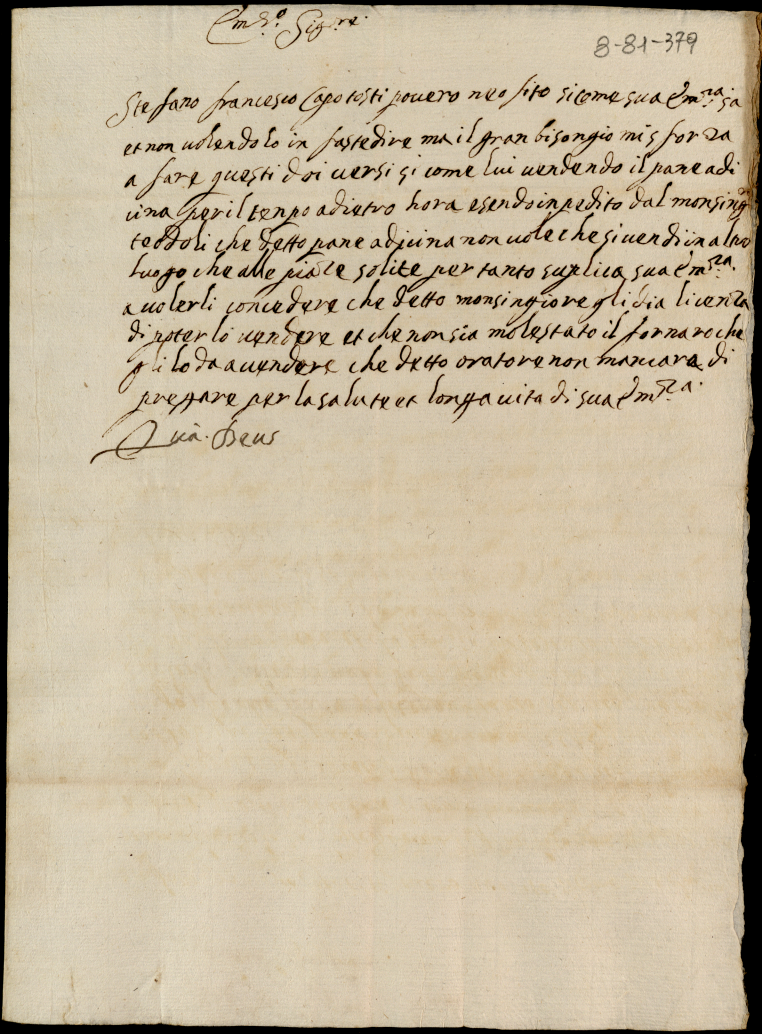 Em.mo Sig.re
8-81-379
Stefano francesco Capotosti povero neofito sicome sua Em.za sa
et non volendolo in fastedire ma il gran bisongio mi sforza
a fare questi doi versi si come lui vendendo il pane a di
cina per il tenpo adietro hora esendo inpedito dal monsing.r
teodoli che detto pane a dicina non vole che si vendi in altro
luogo che alle piaze solite per tanto suplica sua Em.za
a volerli concedere che detto monsingiore gli dia licenza
di poterlo vendere et che non sia molestato il fornaro che
gli lo da a vendere che detto oratore non mancara di
preggare per la salute et longa vita di sua Em.za
Quā. Deus